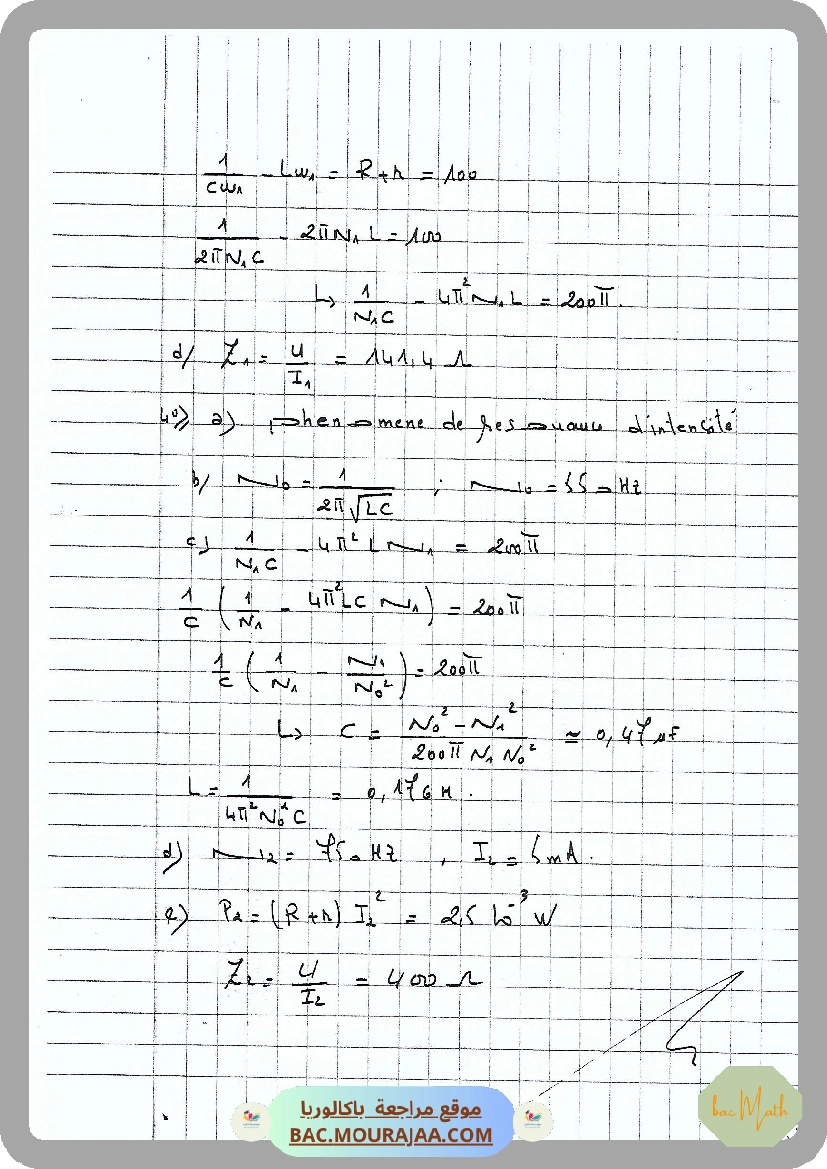 1/(Cω₁) - Lω₁ = R+r = 100
1/(2πN₁C) - 2πN₁L = 100
↳ 1/(N₁C) - 4π²N₁L = 200π.
d/ Z₁ = U/I₁ = 141,4 Ω
4°) a) phenomene de resonance d'intensité
b/ N₀ = 1/(2π√LC) ; N₀ = 550 Hz
c) 1/(N₁C) - 4π²LN₁ = 200π
1/C (1/N₁ - 4π²LC N₁) = 200π
1/C (1/N₁ - N₁/N₀²) = 200π
↳ C = (N₀² - N₁²)/(200π N₁ N₀²) ≃ 0,47 µF
L = 1/(4π²N₀²C) = 0,176 H.
d) N₂ = 750 Hz , I₂ = 5mA.
e) P₂ = (R+r) I₂² = 2,5 10⁻³ W
Z₂ = U/I₂ = 400 Ω
موقع مراجعة باكالوريا
BAC.MOURAJAA.COM
bac Math